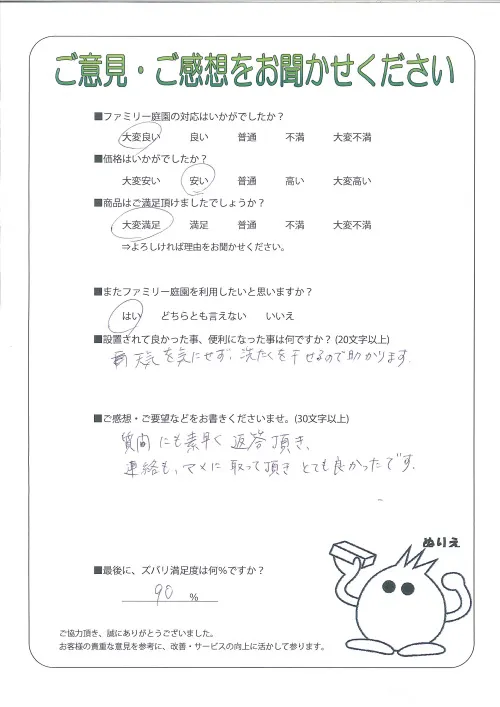 ご意見・ご感想をお聞かせください
■ファミリー庭園の対応はいかがでしたか？
大変良い 良い 普通 不満 大変不満
■価格はいかがでしたか？
大変安い 安い 普通 高い 大変高い
■商品はご満足頂けましたでしょうか？
大変満足 満足 普通 不満 大変不満
⇒よろしければ理由をお聞かせください。
■またファミリー庭園を利用したいと思いますか？
はい どちらとも言えない いいえ
■設置されて良かった事、便利になった事は何ですか？(20文字以上)
天気を気にせず、洗たくを干せるので助かります.
■ご感想・ご要望などをお書きくださいませ。(30文字以上)
質問にも素早く返答頂き、
連絡も、マメに取って頂きとても良かったです.
ぬりえ
■最後に、ズバリ満足度は何％ですか？
90 %
ご協力頂き、誠にありがとうございました。
お客様の貴重な意見を参考に、改善・サービスの向上に活かして参ります。